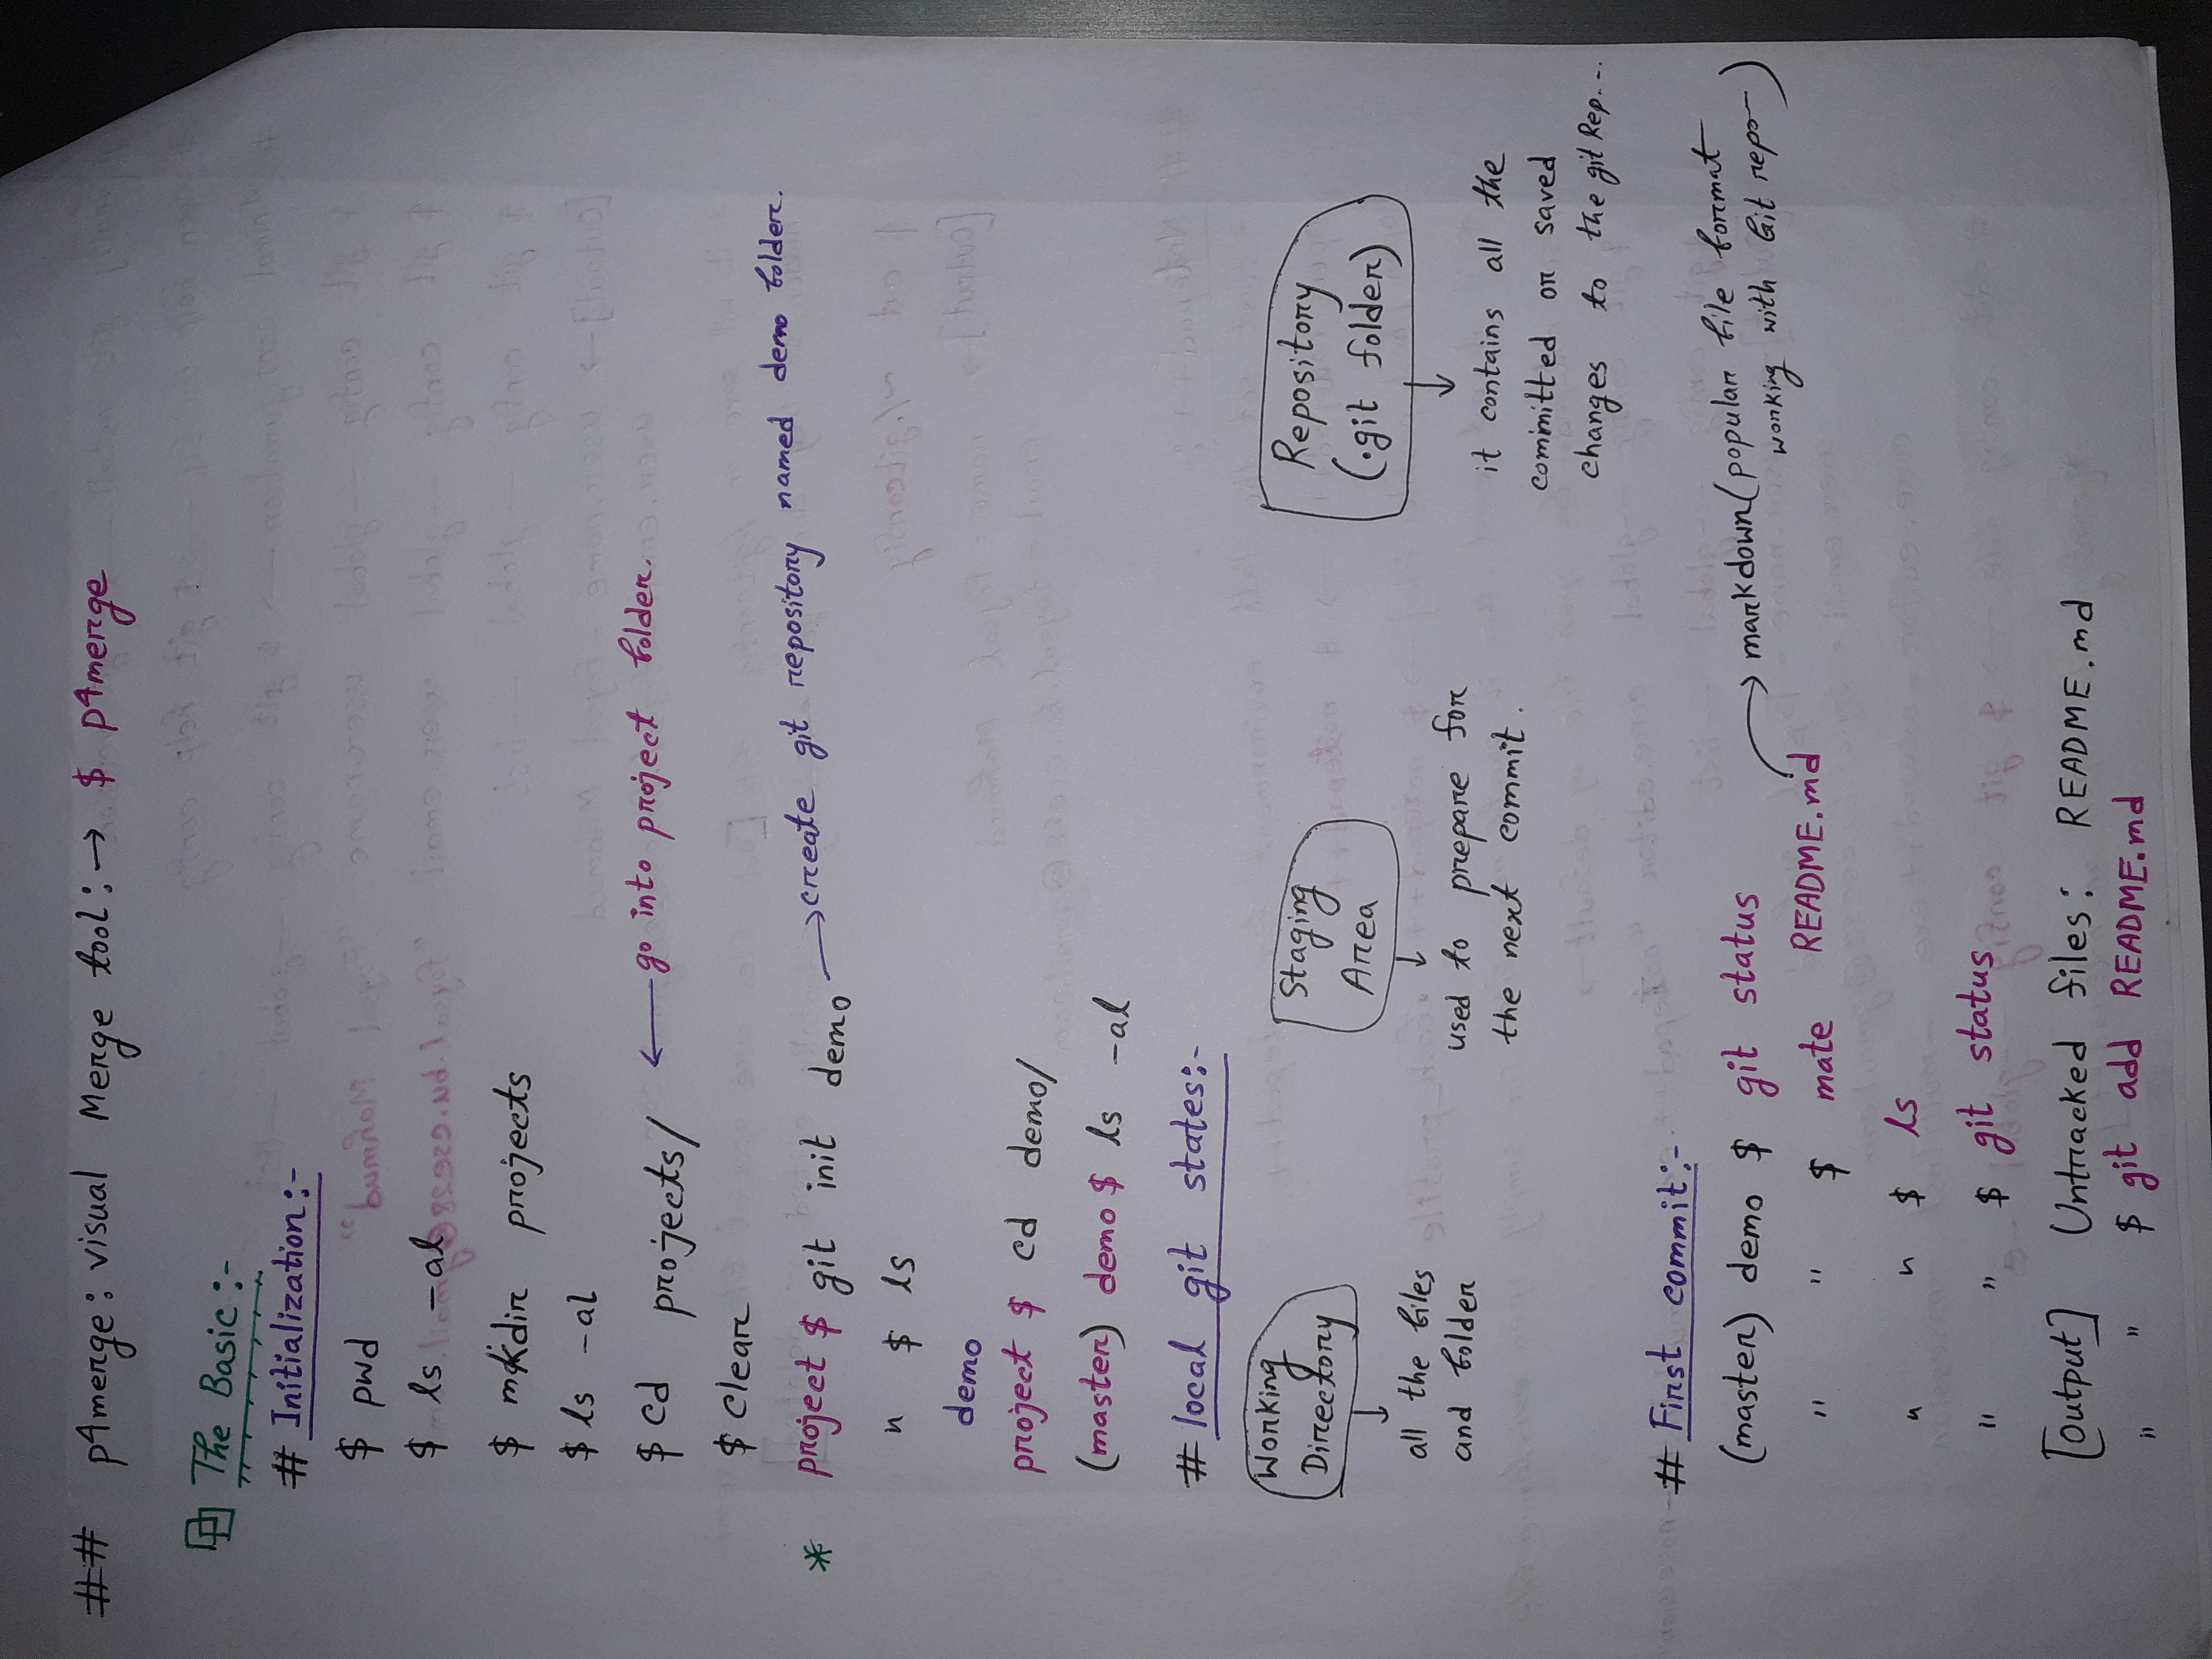 ## p4merge: visual Merge tool: → $ p4merge
The Basic:-
# Initialization:-
$ pwd
$ ls -al
$ mkdir projects
$ ls -al
$ cd projects/ ← go into project folder.
$ clear
* project $ git init demo → create git repository named demo folder.
" $ ls
demo
project $ cd demo/
(master) demo $ ls -al
# local git states:-
Working
Directory
↓
all the files
and folder
Staging
Area
↓
used to prepare for
the next commit.
Repository
(.git folder)
↓
it contains all the
committed or saved
changes to the git Rep...
# First commit:-
(master) demo $ git status
" " $ mate README.md → markdown (popular file format
working with Git repo—)
" " $ ls
" " $ git status
[output] Untracked files: README.md
" " $ git add README.md